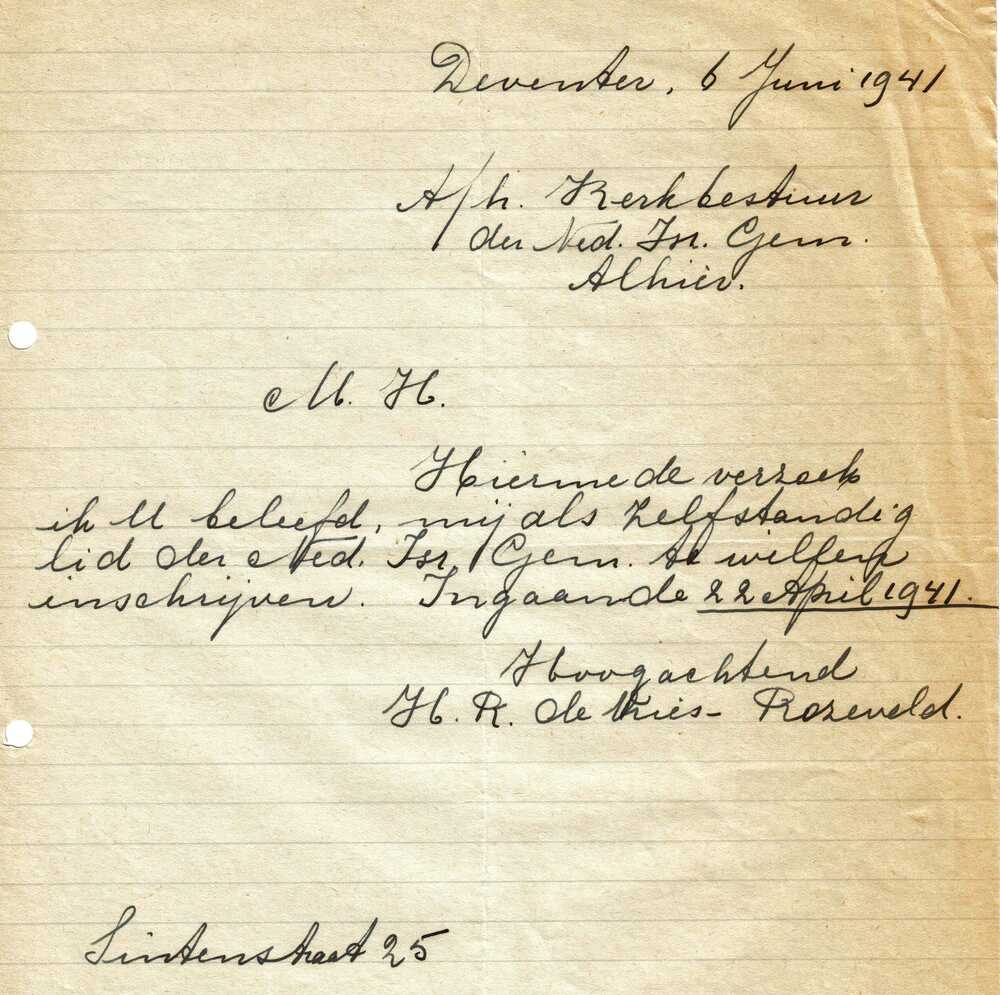 Deventer, 6 Juni 1941
A/h. Kerkbestuur
der Ned. Isr. Gem.
Alhier.
M. H.
Hiermede verzoek
ik U beleefd, mij als zelfstandig
lid der Ned. Isr. Gem. te willen
inschrijven. Ingaande 22 April 1941.
Hoogachtend
H. R. de Vries - Rozeveld.
Sintenstraat 25